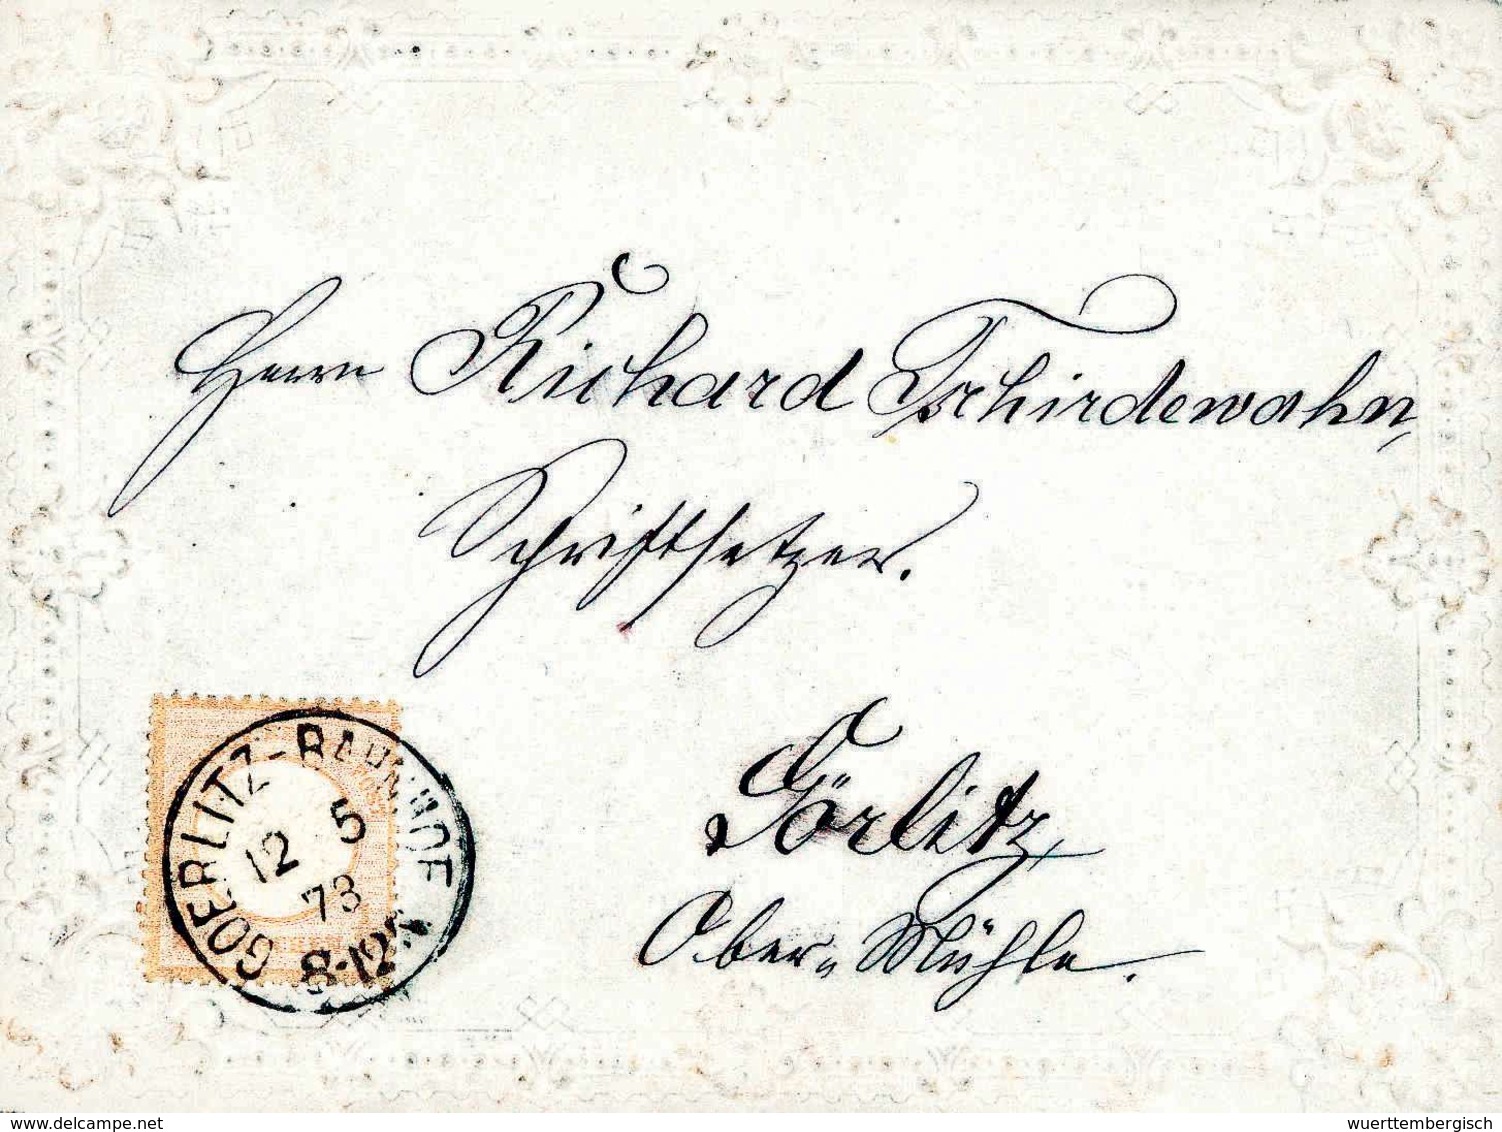 Herrn Richard Tschirdewahn,
Schriftsetzer.
Görlitz,
Ober-Mühle.
GOERLITZ-BAHNHOF
12 5
73
8-12
www.delcampe.net
wuerttembergisch